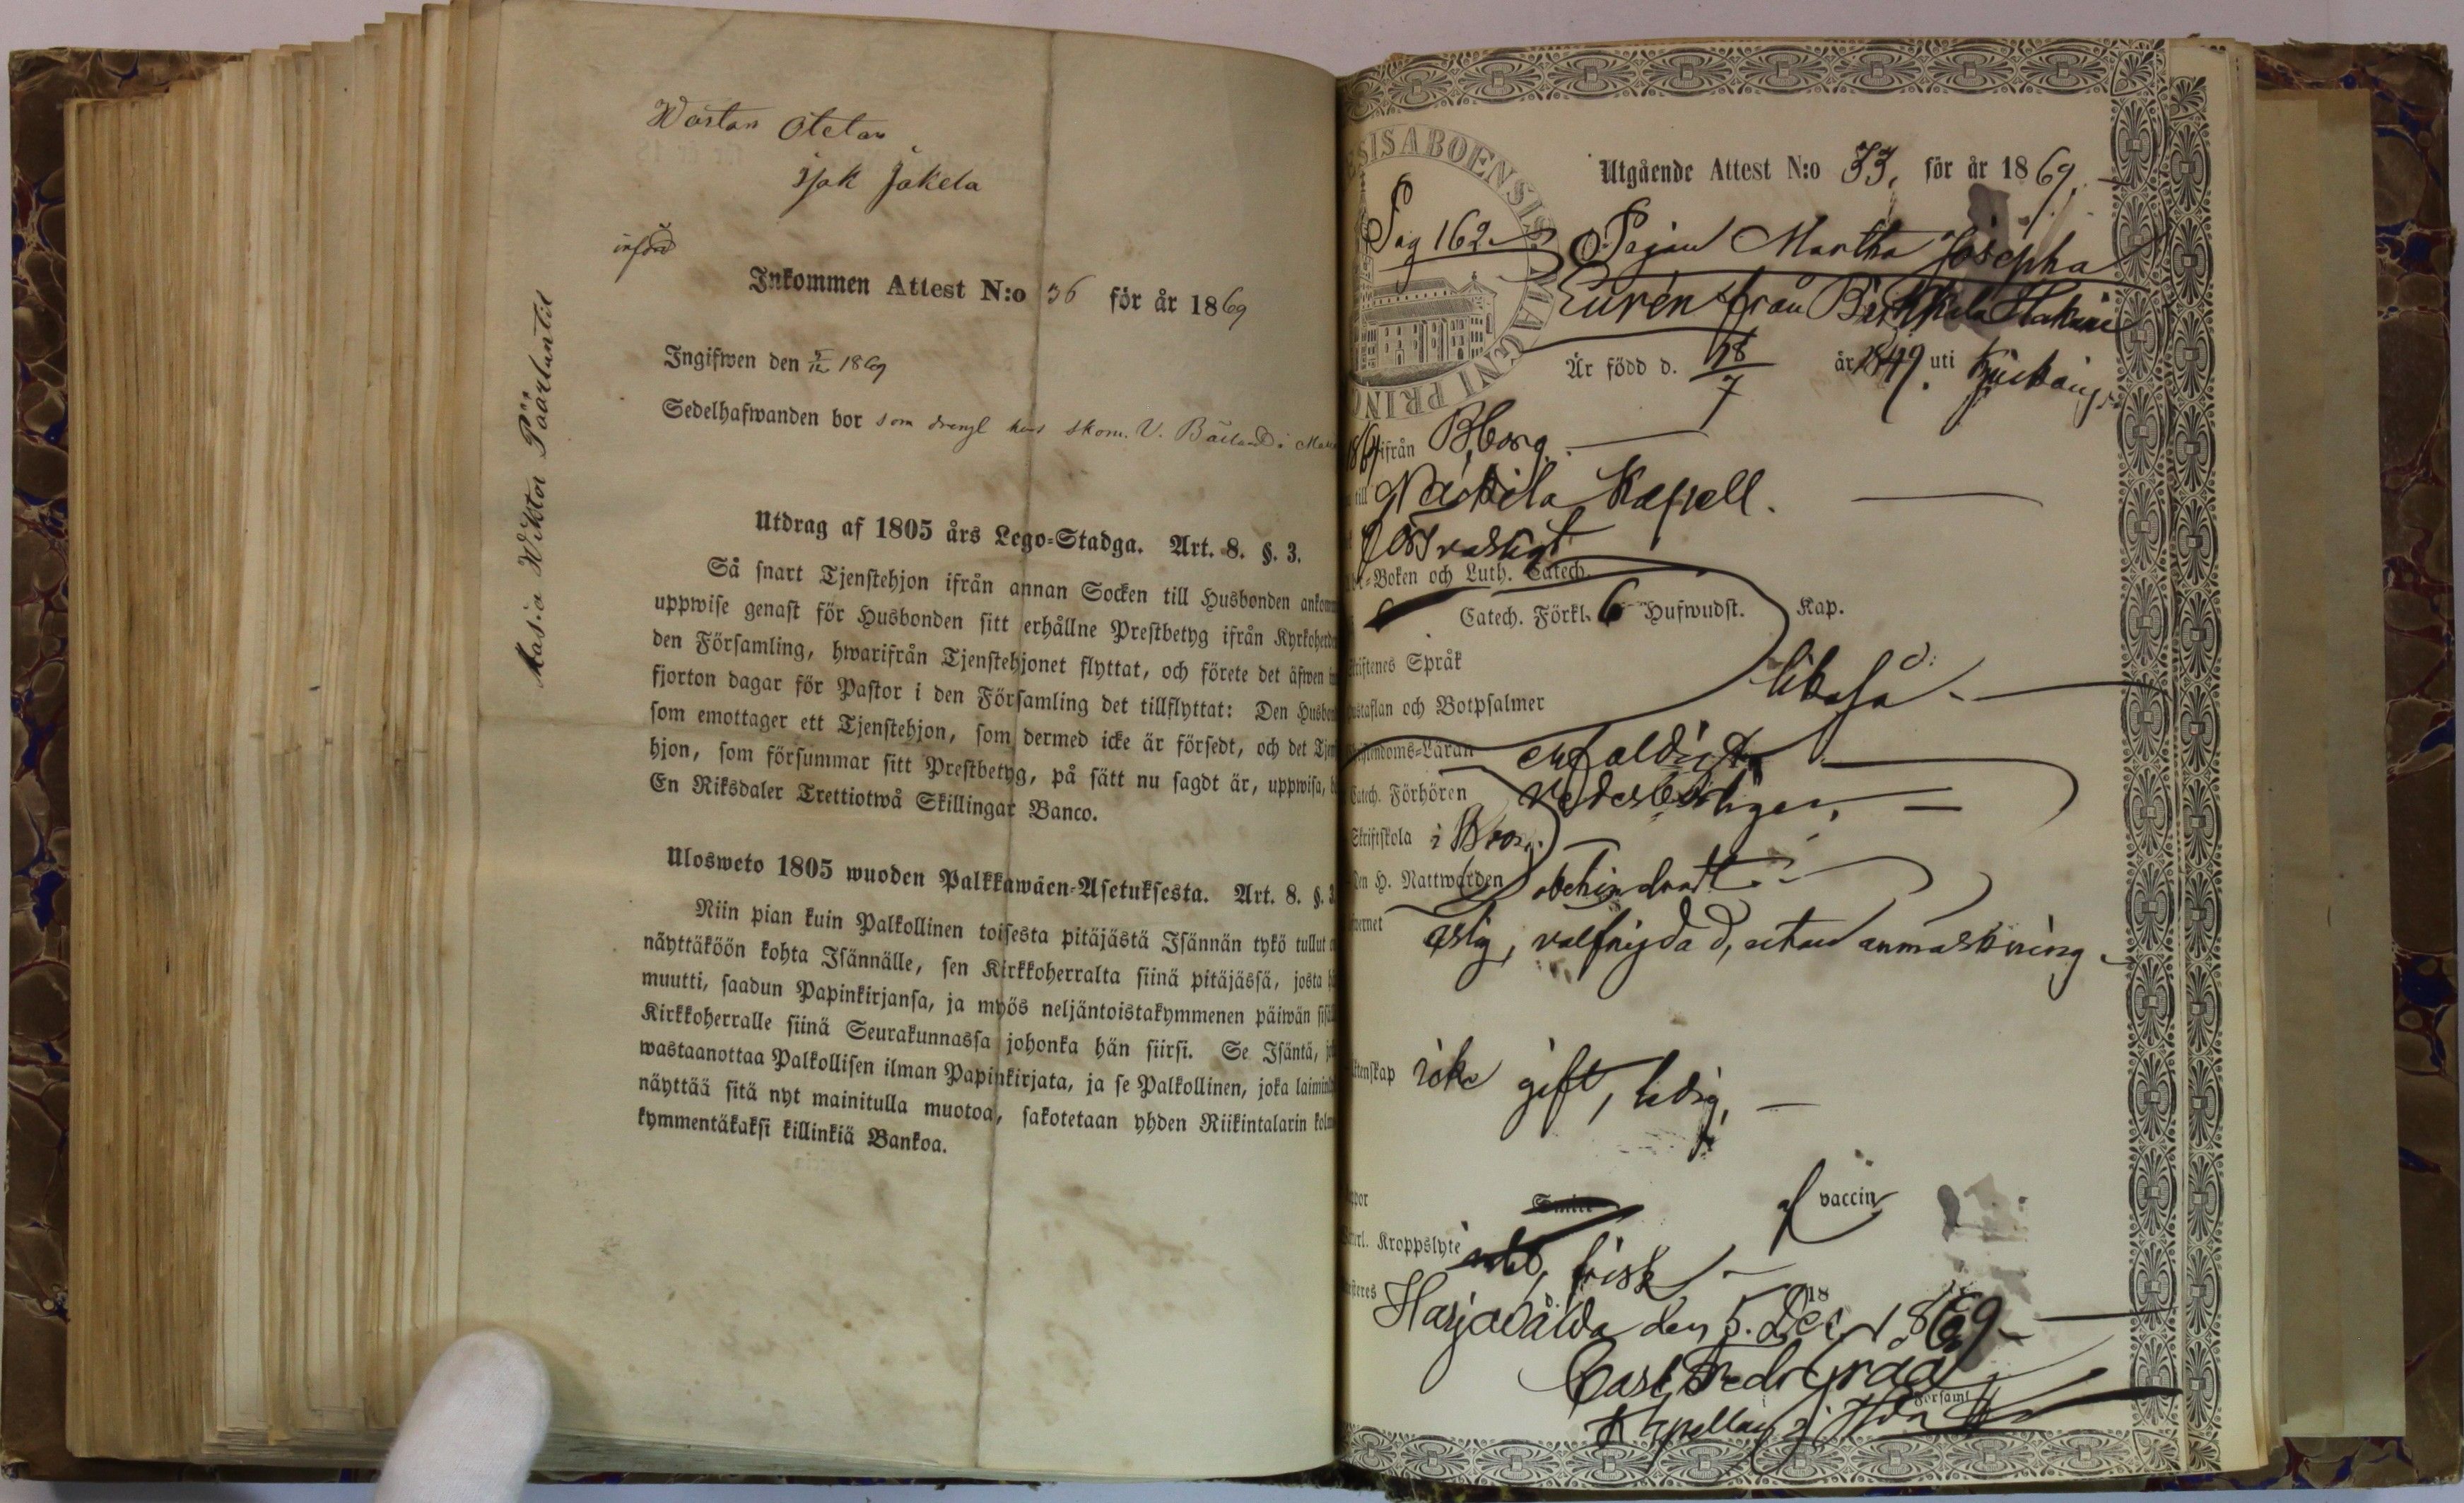 Wastan Otetan
Isak Jakela
införd
Inkommen Attest N:o 36 för år 1869
Ingifwen den 1869
Sedelhafwanden bor som drengl hos skom. V. Bäcland i
Kas:a Wiktor Päärlantil
Utdrag af 1805 års Lego-Stadga. Art. 8. §. 3.
Så snart Tjenstehjon ifrån annan Socken till Husbonden ankom
uppwise genast för Husbonden sitt erhållne Prestbetyg ifrån Kyrkoherd
den Församling, hwarifrån Tjenstehjonet flyttat, och förete det äfwen i
fjorton dagar för Pastor i den Församling det tillflyttat: Den Husbon
som emottager ett Tjenstehjon, som dermed icke är försedt, och det Tjen
hjon, som försummar sitt Prestbetyg, på sätt nu sagdt är, uppwisa, b
En Riksdaler Trettiotwå Skillingar Banco.
Ulosweto 1805 wuoden Palkkawäen-Asetuksesta. Art. 8. §. 3
Niin pian kuin Palkollinen toisesta pitäjästä Isännän tykö tullut
näyttäköön kohta Isännälle, sen Kirkkoherralta siinä pitäjässä, josta
muutti, saadun Papinkirjansa, ja myös neljäntoistakymmenen päiwän sisä
Kirkkoherralle siinä Seurakunnassa johonka hän siirsi. Se Isäntä, jo
wastaanottaa Palkollisen ilman Papinkirjata, ja se Palkollinen, joka laimin
näyttää sitä nyt mainitulla muotoa, sakotetaan yhden Riikintalarin kolm
kymmentäkaksi killinkiä Bankoa.
SISABOENSIS MAGNI PRINC
Utgående Attest N:o 33, för år 1869.
Pag 162
Pigan Martha Josepha
Eurén från Birkkala Hakuni
Är född d. 18/7 år 1849. uti
1869 ifrån B,borg.
till Nackila Kapell.
försvarligt
Boken och Luth. Catech.
Catech. Förkl. 6 Hufwudst. Kap.
Skriftenes Språk
Hustaflan och Botpsalmer likaså
Christendoms-Läran enfaldigt
Catech. Förhören vederbörligen,
Skriftskola i
den H. Nattwarden obehindradt
wernet ärlig, välfrejdad, utan anmärkning
Äktenskap icke gift, ledig,
Koppor af vaccin
Kroppslyte intet, frisk
Attesteres Harjavalda den 5. Dec. 1869
Carl Fredr Gråå
Kapellan i Hda Församl